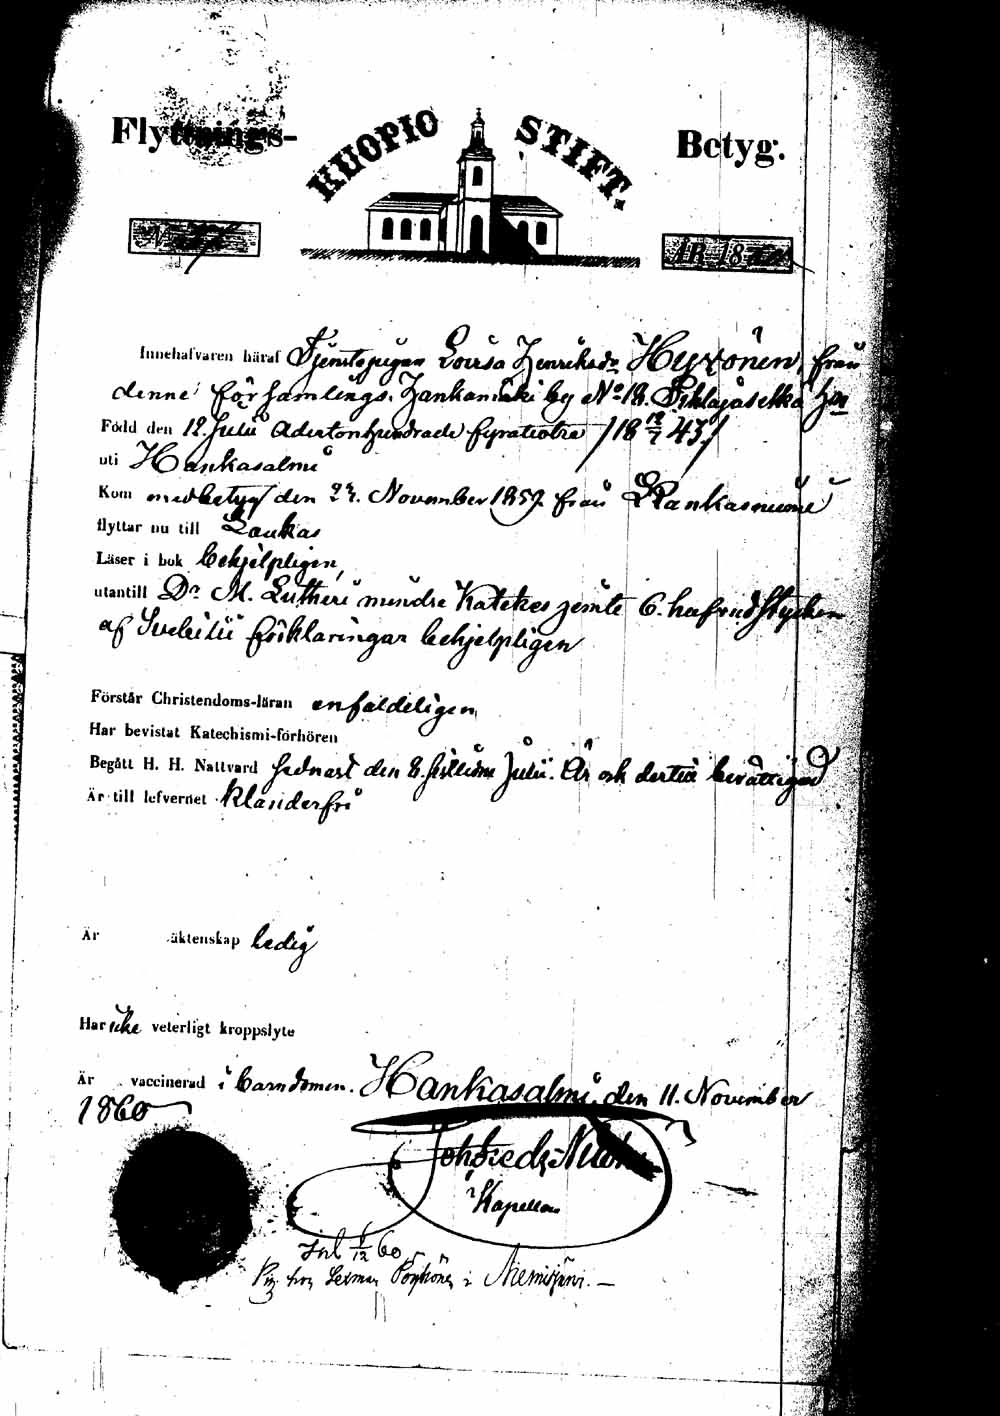 Flyttnings- KUOPIO STIFT. Betyg.
N
ÅR 18
Innehafvaren häraf Tjenstepigan Lovisa Henriksdr Hytönen, från
denne församlings. Hankamäki by No 18.
Född den 12. Julii Adertonhundrade fyratiotre /18 12/7 43./
uti Hankasalmi
Kom med betyg den November 1857. från
flyttar nu till Laukas
Läser i bok behjelpligen,
utantill Dr. M. Lutheri mindre Katekes jemte 6. hufvudstycken
af Svebilii förklaringar behjelpligen
Förstår Christendoms-läran enfaldeligen
Har bevistat Katechismi-förhören
Begått H. H. Nattvard sednast den 8. sistlidne Julii. Är och dertill berättigad
Är till lefvernet klanderfri
Är äktenskap ledig
Har icke veterligt kroppslyte
Är vaccinerad i barndomen. Hankasalmi den 11. November
1860
Joh Fredr
Kapellan
60
Pig hos i